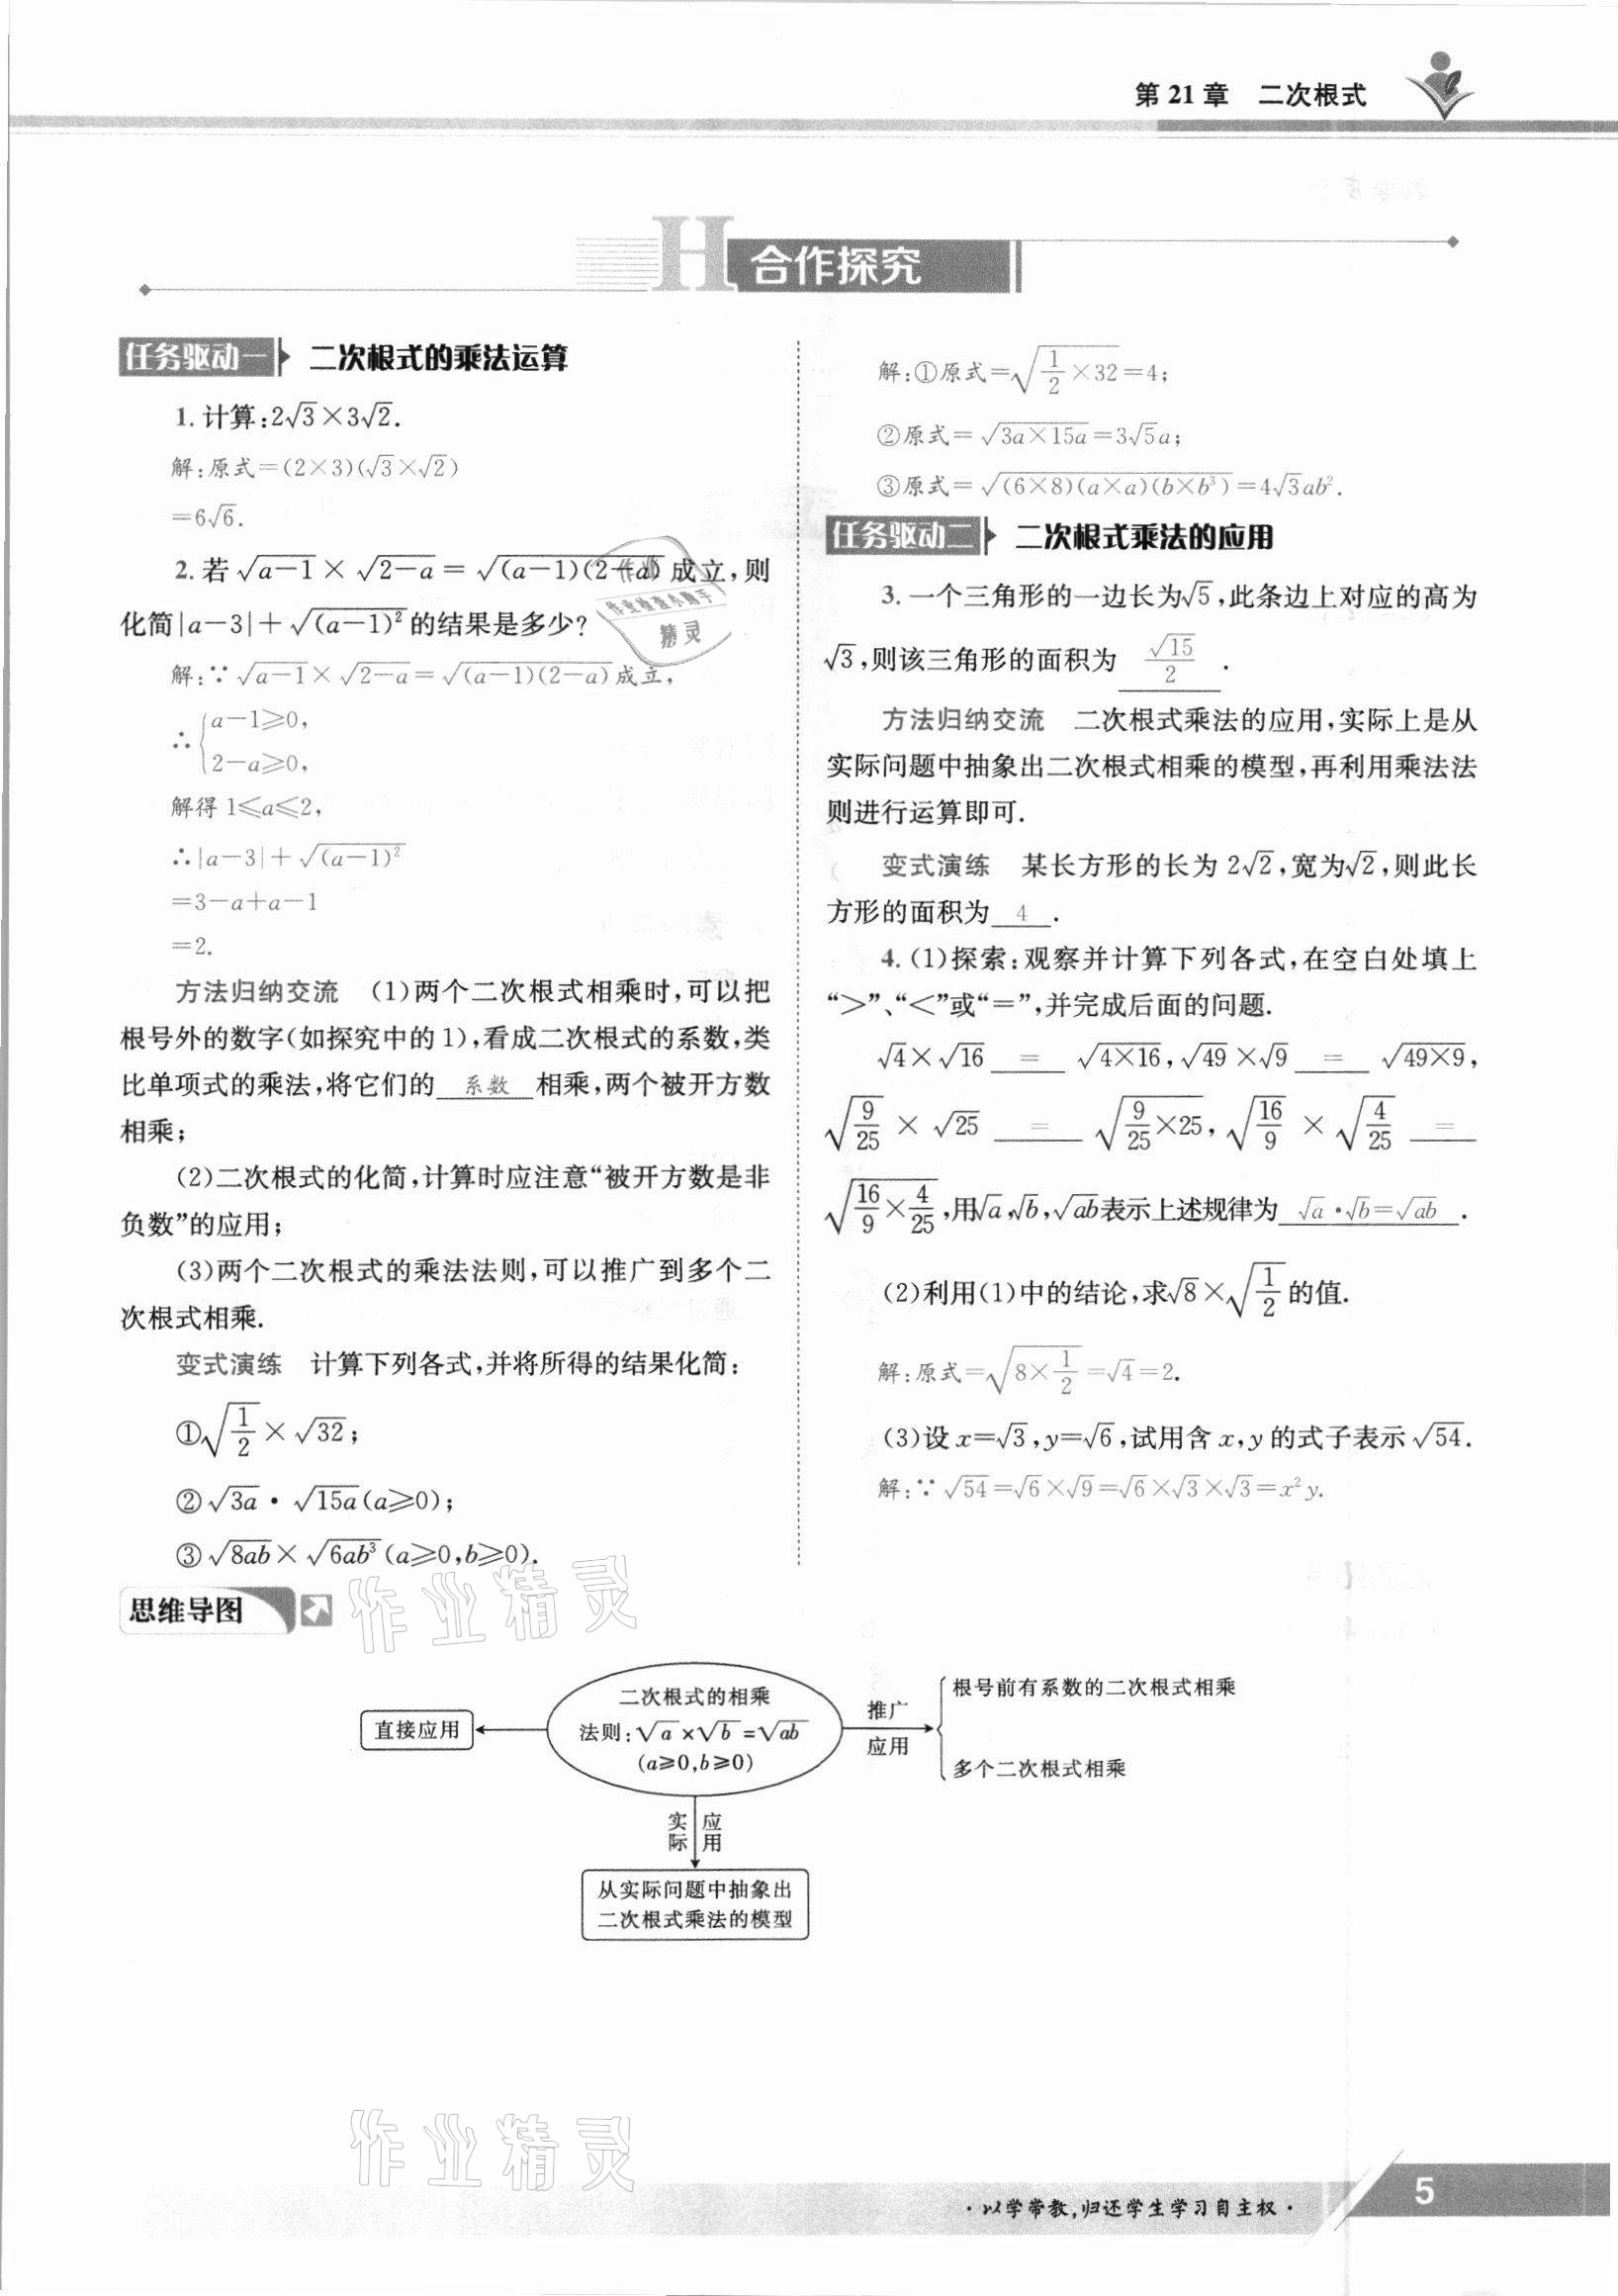 第 21 章　二次根式
H 合作探究
任务驱动一　二次根式的乘法运算
1. 计算:2√3×3√2.
解:原式=(2×3)(√3×√2)
=6√6.
2. 若√(a-1)×√(2-a)=√((a-1)(2-a))成立,则
化简|a-3|+√((a-1)²)的结果是多少?
解:∵√(a-1)×√(2-a)=√((a-1)(2-a))成立,
∴{a-1≥0,
2-a≥0,
解得 1≤a≤2,
∴|a-3|+√((a-1)²)
=3-a+a-1
=2.
方法归纳交流　(1)两个二次根式相乘时,可以把
根号外的数字(如探究中的 1),看成二次根式的系数,类
比单项式的乘法,将它们的 系数 相乘,两个被开方数
相乘;
(2)二次根式的化简,计算时应注意“被开方数是非
负数”的应用;
(3)两个二次根式的乘法法则,可以推广到多个二
次根式相乘.
变式演练　计算下列各式,并将所得的结果化简:
①√(1/2)×√32;
②√(3a)·√(15a)(a≥0);
③√(8ab)×√(6ab³)(a≥0,b≥0).
解:①原式=√(1/2×32)=4;
②原式=√(3a×15a)=3√5a;
③原式=√((6×8)(a×a)(b×b³))=4√3ab².
任务驱动二　二次根式乘法的应用
3. 一个三角形的一边长为√5,此条边上对应的高为
√3,则该三角形的面积为 √15/2 .
方法归纳交流　二次根式乘法的应用,实际上是从
实际问题中抽象出二次根式相乘的模型,再利用乘法法
则进行运算即可.
变式演练　某长方形的长为 2√2,宽为√2,则此长
方形的面积为 4 .
4. (1)探索:观察并计算下列各式,在空白处填上
“>”、“<”或“=”,并完成后面的问题.
√4×√16 = √(4×16),√49×√9 = √(49×9),
√(9/25)×√25 = √(9/25×25),√(16/9)×√(4/25) =
√(16/9×4/25),用√a,√b,√ab表示上述规律为 √a·√b=√ab .
(2)利用(1)中的结论,求√8×√(1/2)的值.
解:原式=√(8×1/2)=√4=2.
(3)设 x=√3,y=√6,试用含 x,y 的式子表示√54.
解:∵√54=√6×√9=√6×√3×√3=x²y.
思维导图
直接应用
二次根式的相乘
法则:√a×√b=√ab
(a≥0,b≥0)
推广
应用
根号前有系数的二次根式相乘
多个二次根式相乘
实际
应用
从实际问题中抽象出
二次根式乘法的模型
作业精灵
作业
作业检查小助手
精灵
作业精灵
·以学带教,归还学生学习自主权·
5